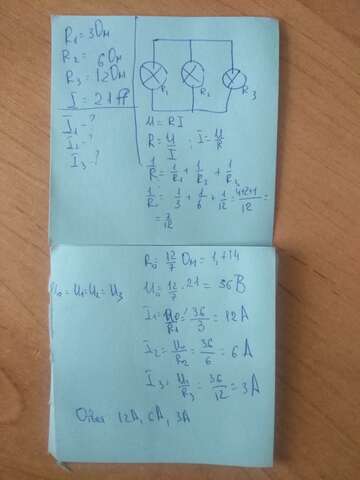 R₁ = 3 Ом
R₂ = 6 Ом
R₃ = 12 Ом
I = 21 А
I₁ - ?
I₂ - ?
I₃ - ?
R₁ R₂ R₃
U = RI
R = U/I ; I = U/R
1/R = 1/R₁ + 1/R₂ + 1/R₃
1/R = 1/3 + 1/6 + 1/12 = (4+2+1)/12 =
= 7/12
R₀ = 12/7 Ом = 1,714
U₀ = U₁ = U₂ = U₃
U₀ = 12/7 · 21 = 36 В
I₁ = U₀/R₁ = 36/3 = 12 А
I₂ = U₀/R₂ = 36/6 = 6 А
I₃ = U₀/R₃ = 36/12 = 3 А
Ответ 12А, 6А, 3А